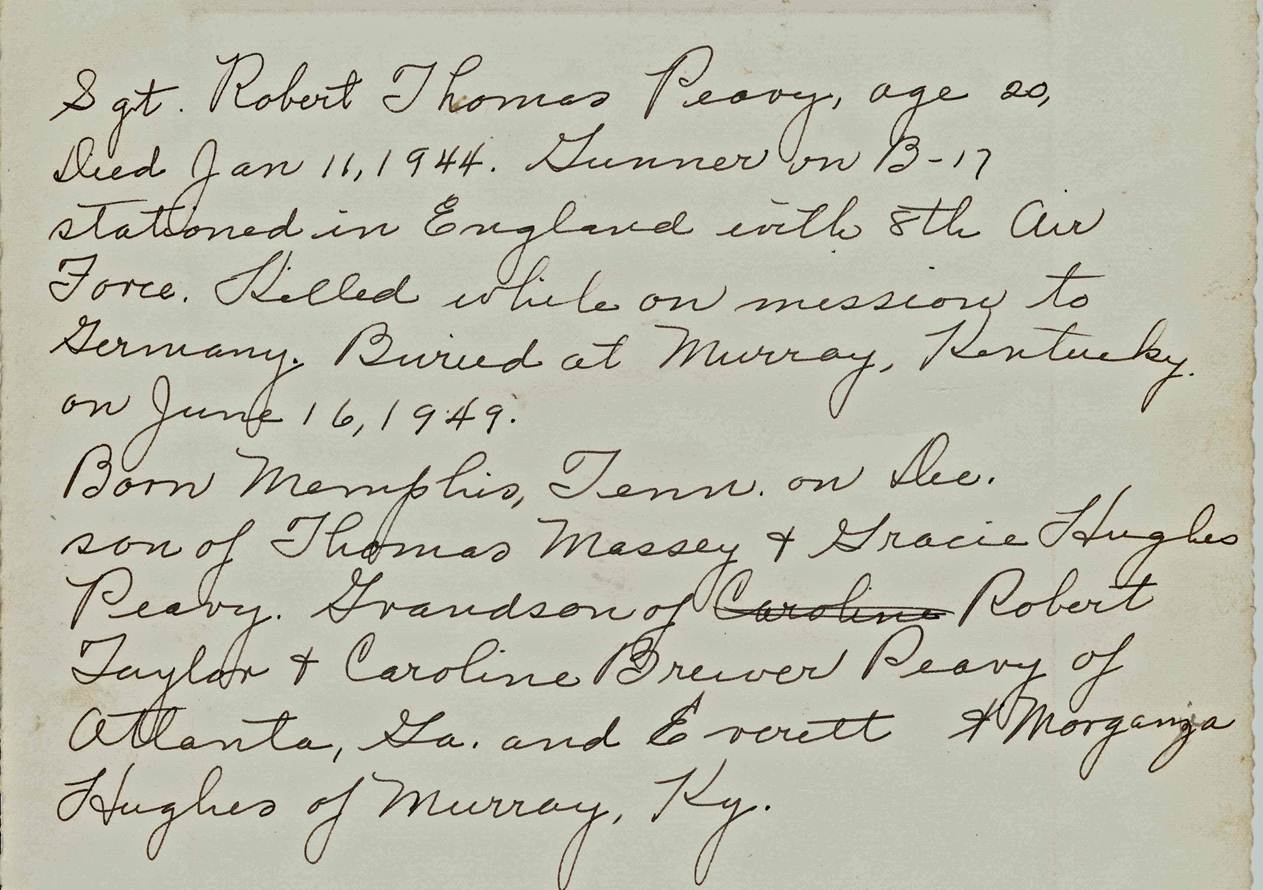 Sgt. Robert Thomas Peavy, age 20,
Died Jan 11, 1944. Gunner on B-17
stationed in England with 8th Air
Force. Killed while on mission to
Germany. Buried at Murray, Kentucky.
on June 16, 1949.
Born Memphis, Tenn. on Dec.
son of Thomas Massey + Gracie Hughes
Peavy. Grandson of Caroline Robert
Taylor + Caroline Brewer Peavy of
Atlanta, Ga. and Everett & Morganza
Hughes of Murray, Ky.